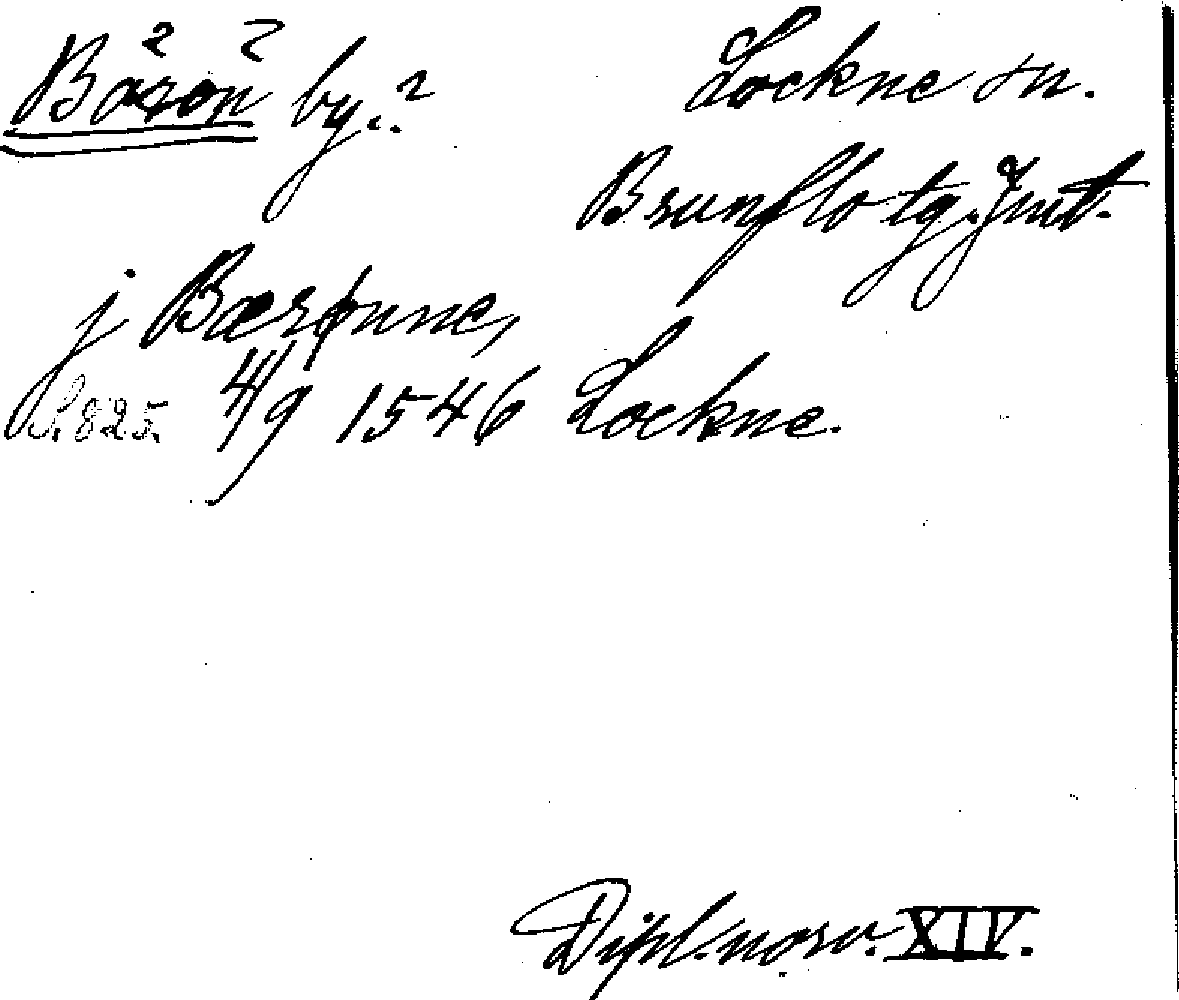 Båsön by.?
Lockne sn.
Brunflo tg. Jmt.
j Bæsønne,
S. 825. 4/9 1546 Lockne.
Dipl. norv. XIV.